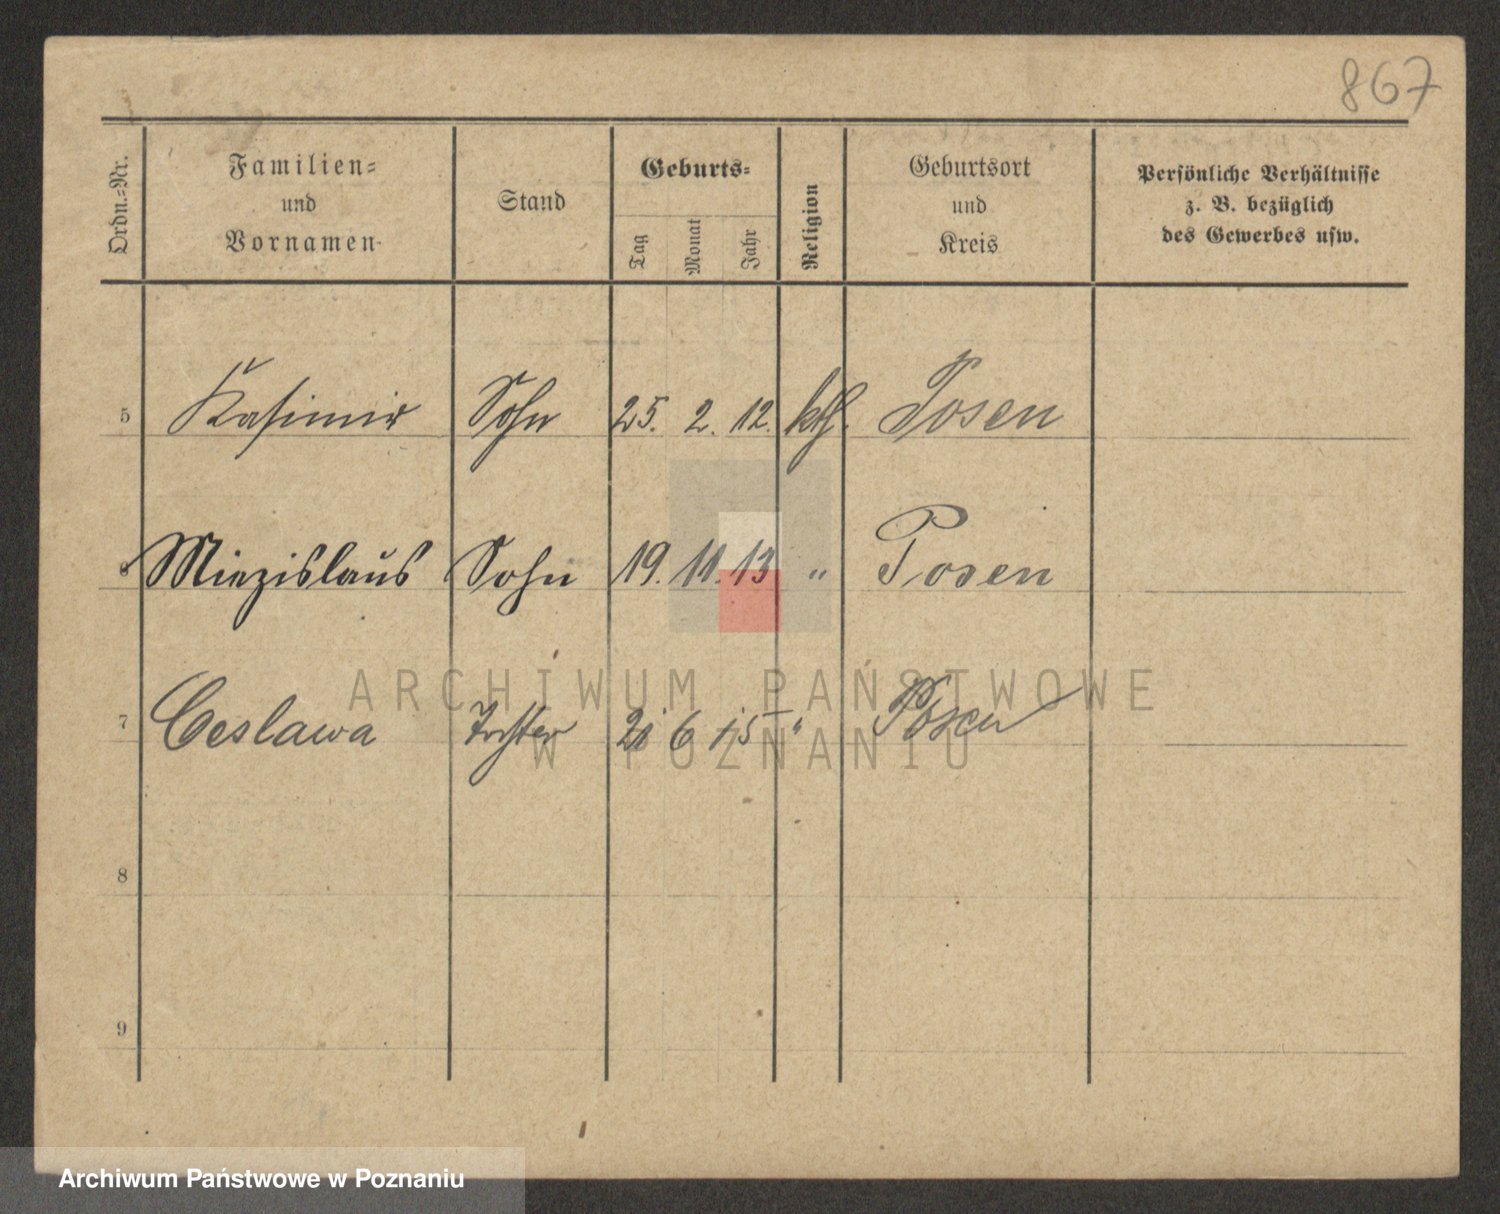 867
Ordn.=Nr.
Familien=
und
Vornamen
Stand
Geburts=
Tag
Monat
Jahr
Religion
Geburtsort
und
Kreis
Persönliche Verhältnisse
z. B. bezüglich
des Gewerbes usw.
5 Kasimir Sohn 25. 2. 12. kth. Posen
6 Miezislaus Sohn 19. 11. 13 " Posen
7 Ceslawa Tochter 6 15 " Posen
8
9
ARCHIWUM PAŃSTWOWE
W POZNANIU
Archiwum Państwowe w Poznaniu